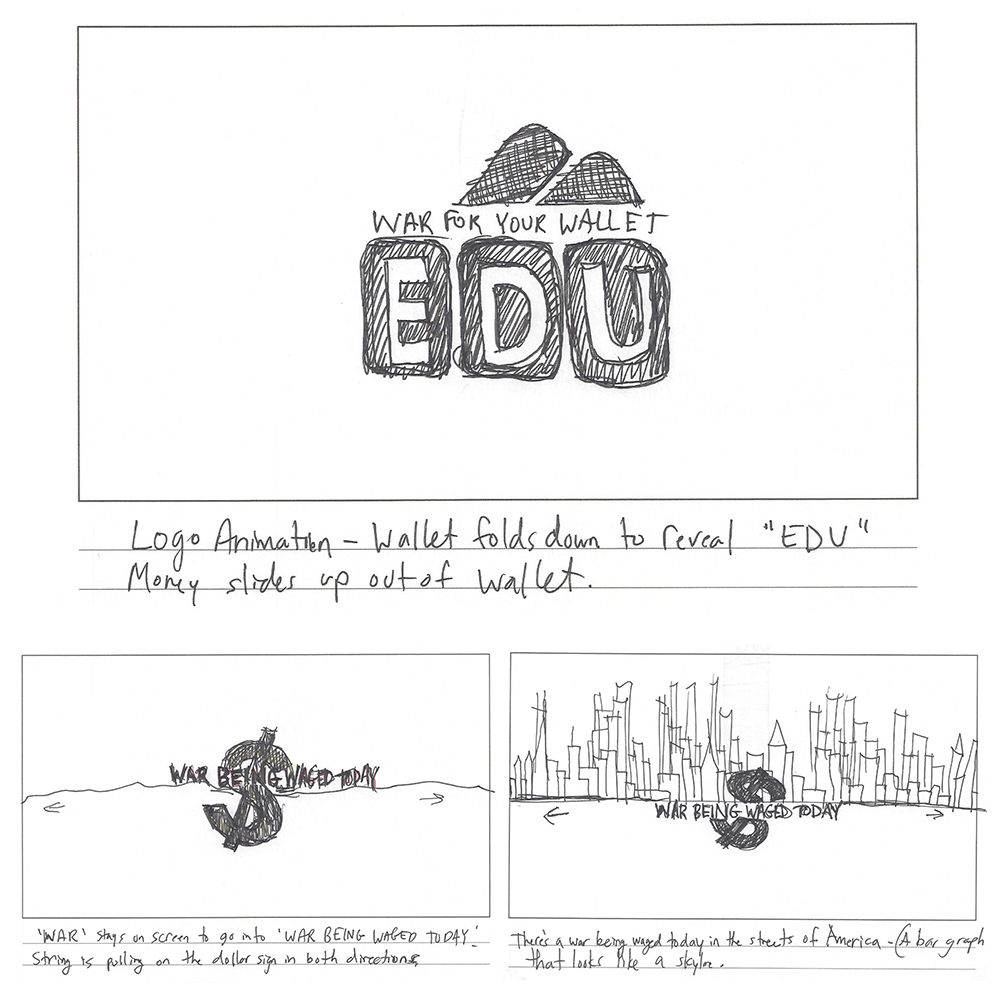 WAR FOR YOUR WALLET
EDU
Logo Animation - Wallet folds down to reveal "EDU"
Money slides up out of wallet.
WAR BEING WAGED TODAY
'WAR' stays on screen to go into 'WAR BEING WAGED TODAY'.
String is pulling on the dollar sign in both directions
WAR BEING WAGED TODAY
There's a war being waged today in the streets of America - (A bar graph
that looks like a skyline.